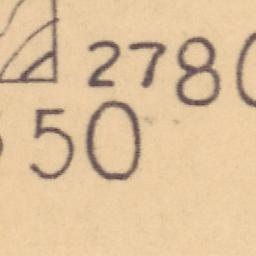 2780
50